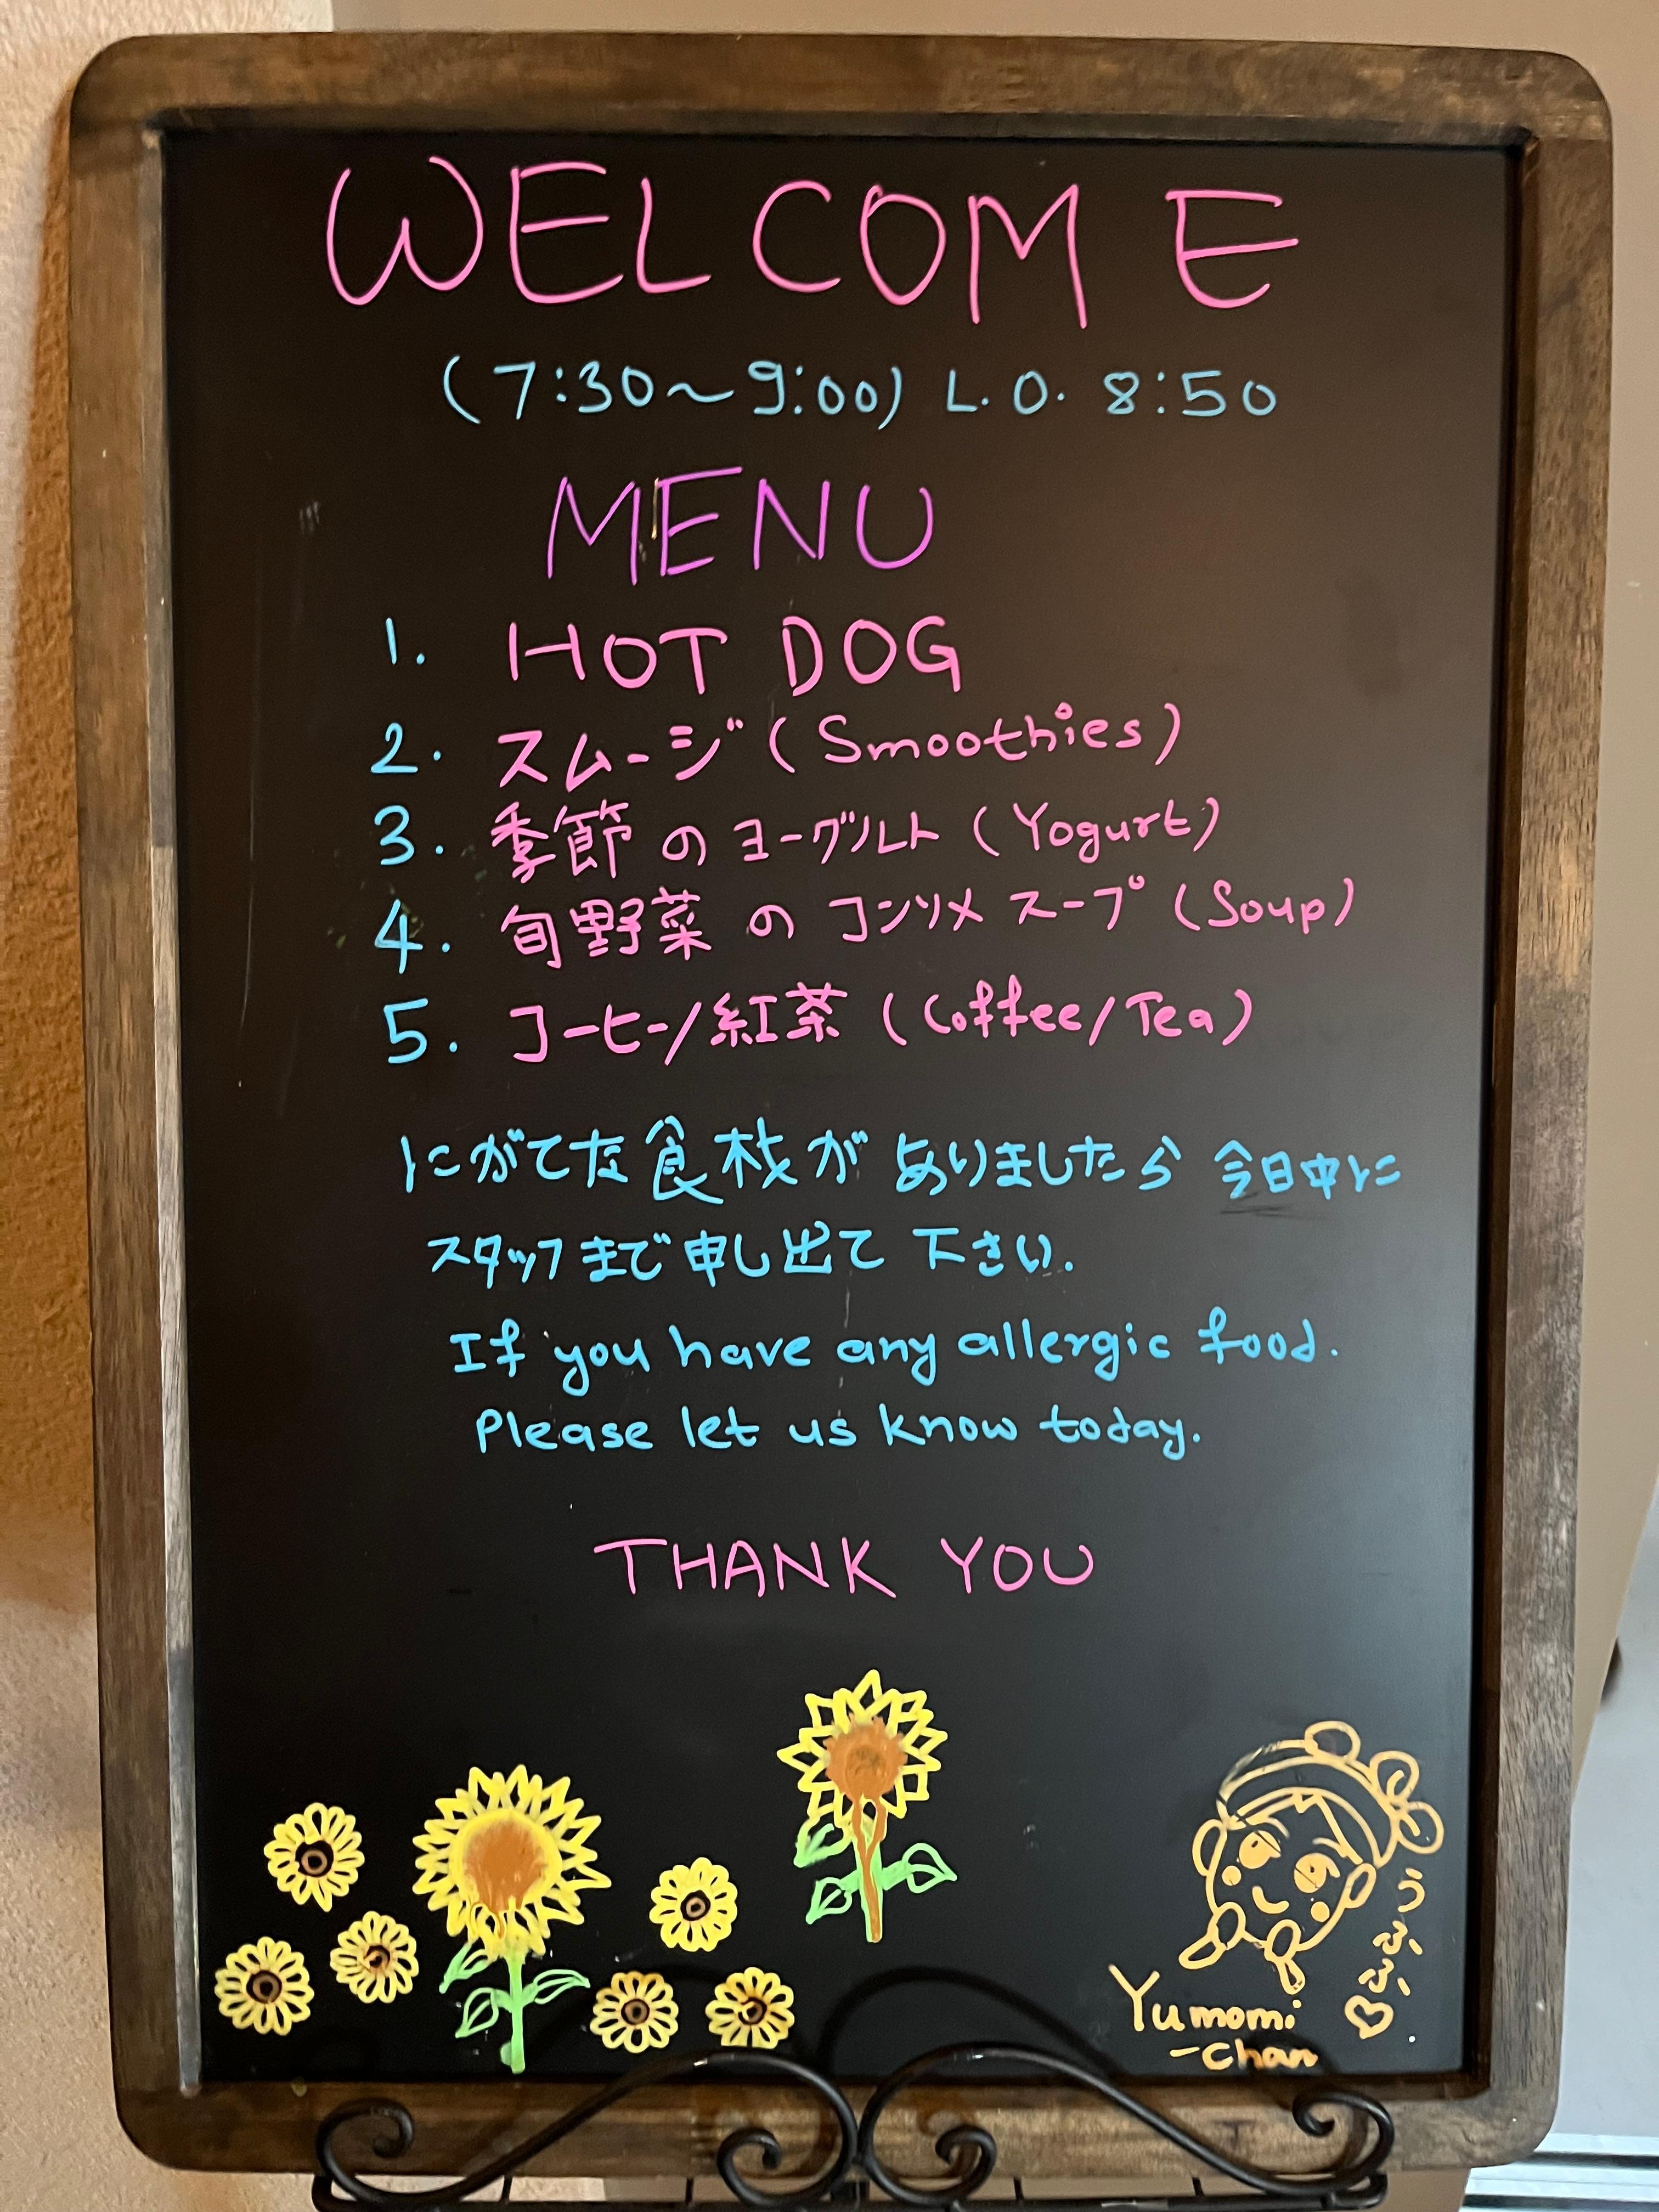 WELCOME
(7:30～9:00) L.O. 8:50
MENU
1. HOT DOG
2. スムージ (Smoothies)
3. 季節のヨーグルト (Yogurt)
4. 旬野菜のコンソメスープ (Soup)
5. コーヒー/紅茶 (Coffee/Tea)
にがてな食材がありましたら今日中に
スタッフまで申し出て下さい.
If you have any allergic food.
Please let us know today.
THANK YOU
Yumomi
-chan